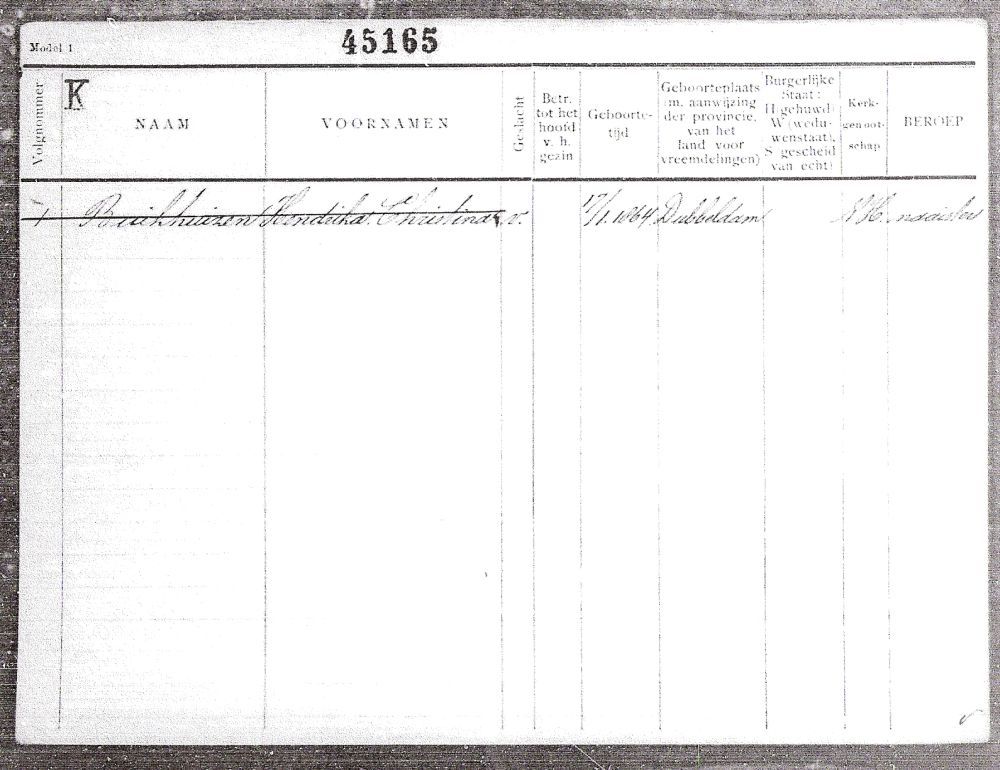 Model 1
45165
K
Volgnummer
NAAM
VOORNAMEN
Geslacht
Betr.
tot het
hoofd
v. h.
gezin
Geboorte-
tijd
Geboorteplaats
(m. aanwijzing
der provincie,
van het
land voor
vreemdelingen)
Burgerlijke
Staat:
H (gehuwd)
W (wedu-
wenstaat),
S (gescheid
van echt)
Kerk-
genoot-
schap
BEROEP
1 Buikhuizen Hendrika Christina v. 17/1.1864 Dubbeldam N.H. naaister